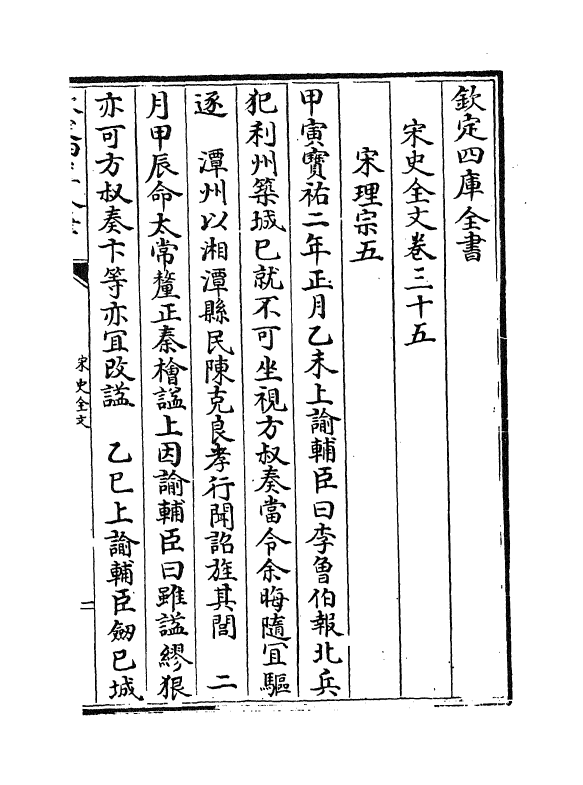 欽定四庫全書
宋史全文卷三十五
宋理宗五
甲寅寳祐二年正月乙未上諭輔臣曰李魯伯報北兵
犯利州築城已就不可坐視方叔奏當令余晦隨冝驅
逐　潭州以湘潭縣民陳克良孝行聞詔旌其閭　二
月甲辰命太常釐正秦檜諡上因諭輔臣曰雖諡繆狠
亦可方叔奏卞等亦冝改諡　乙巳上諭輔臣劒已城
宋史全文